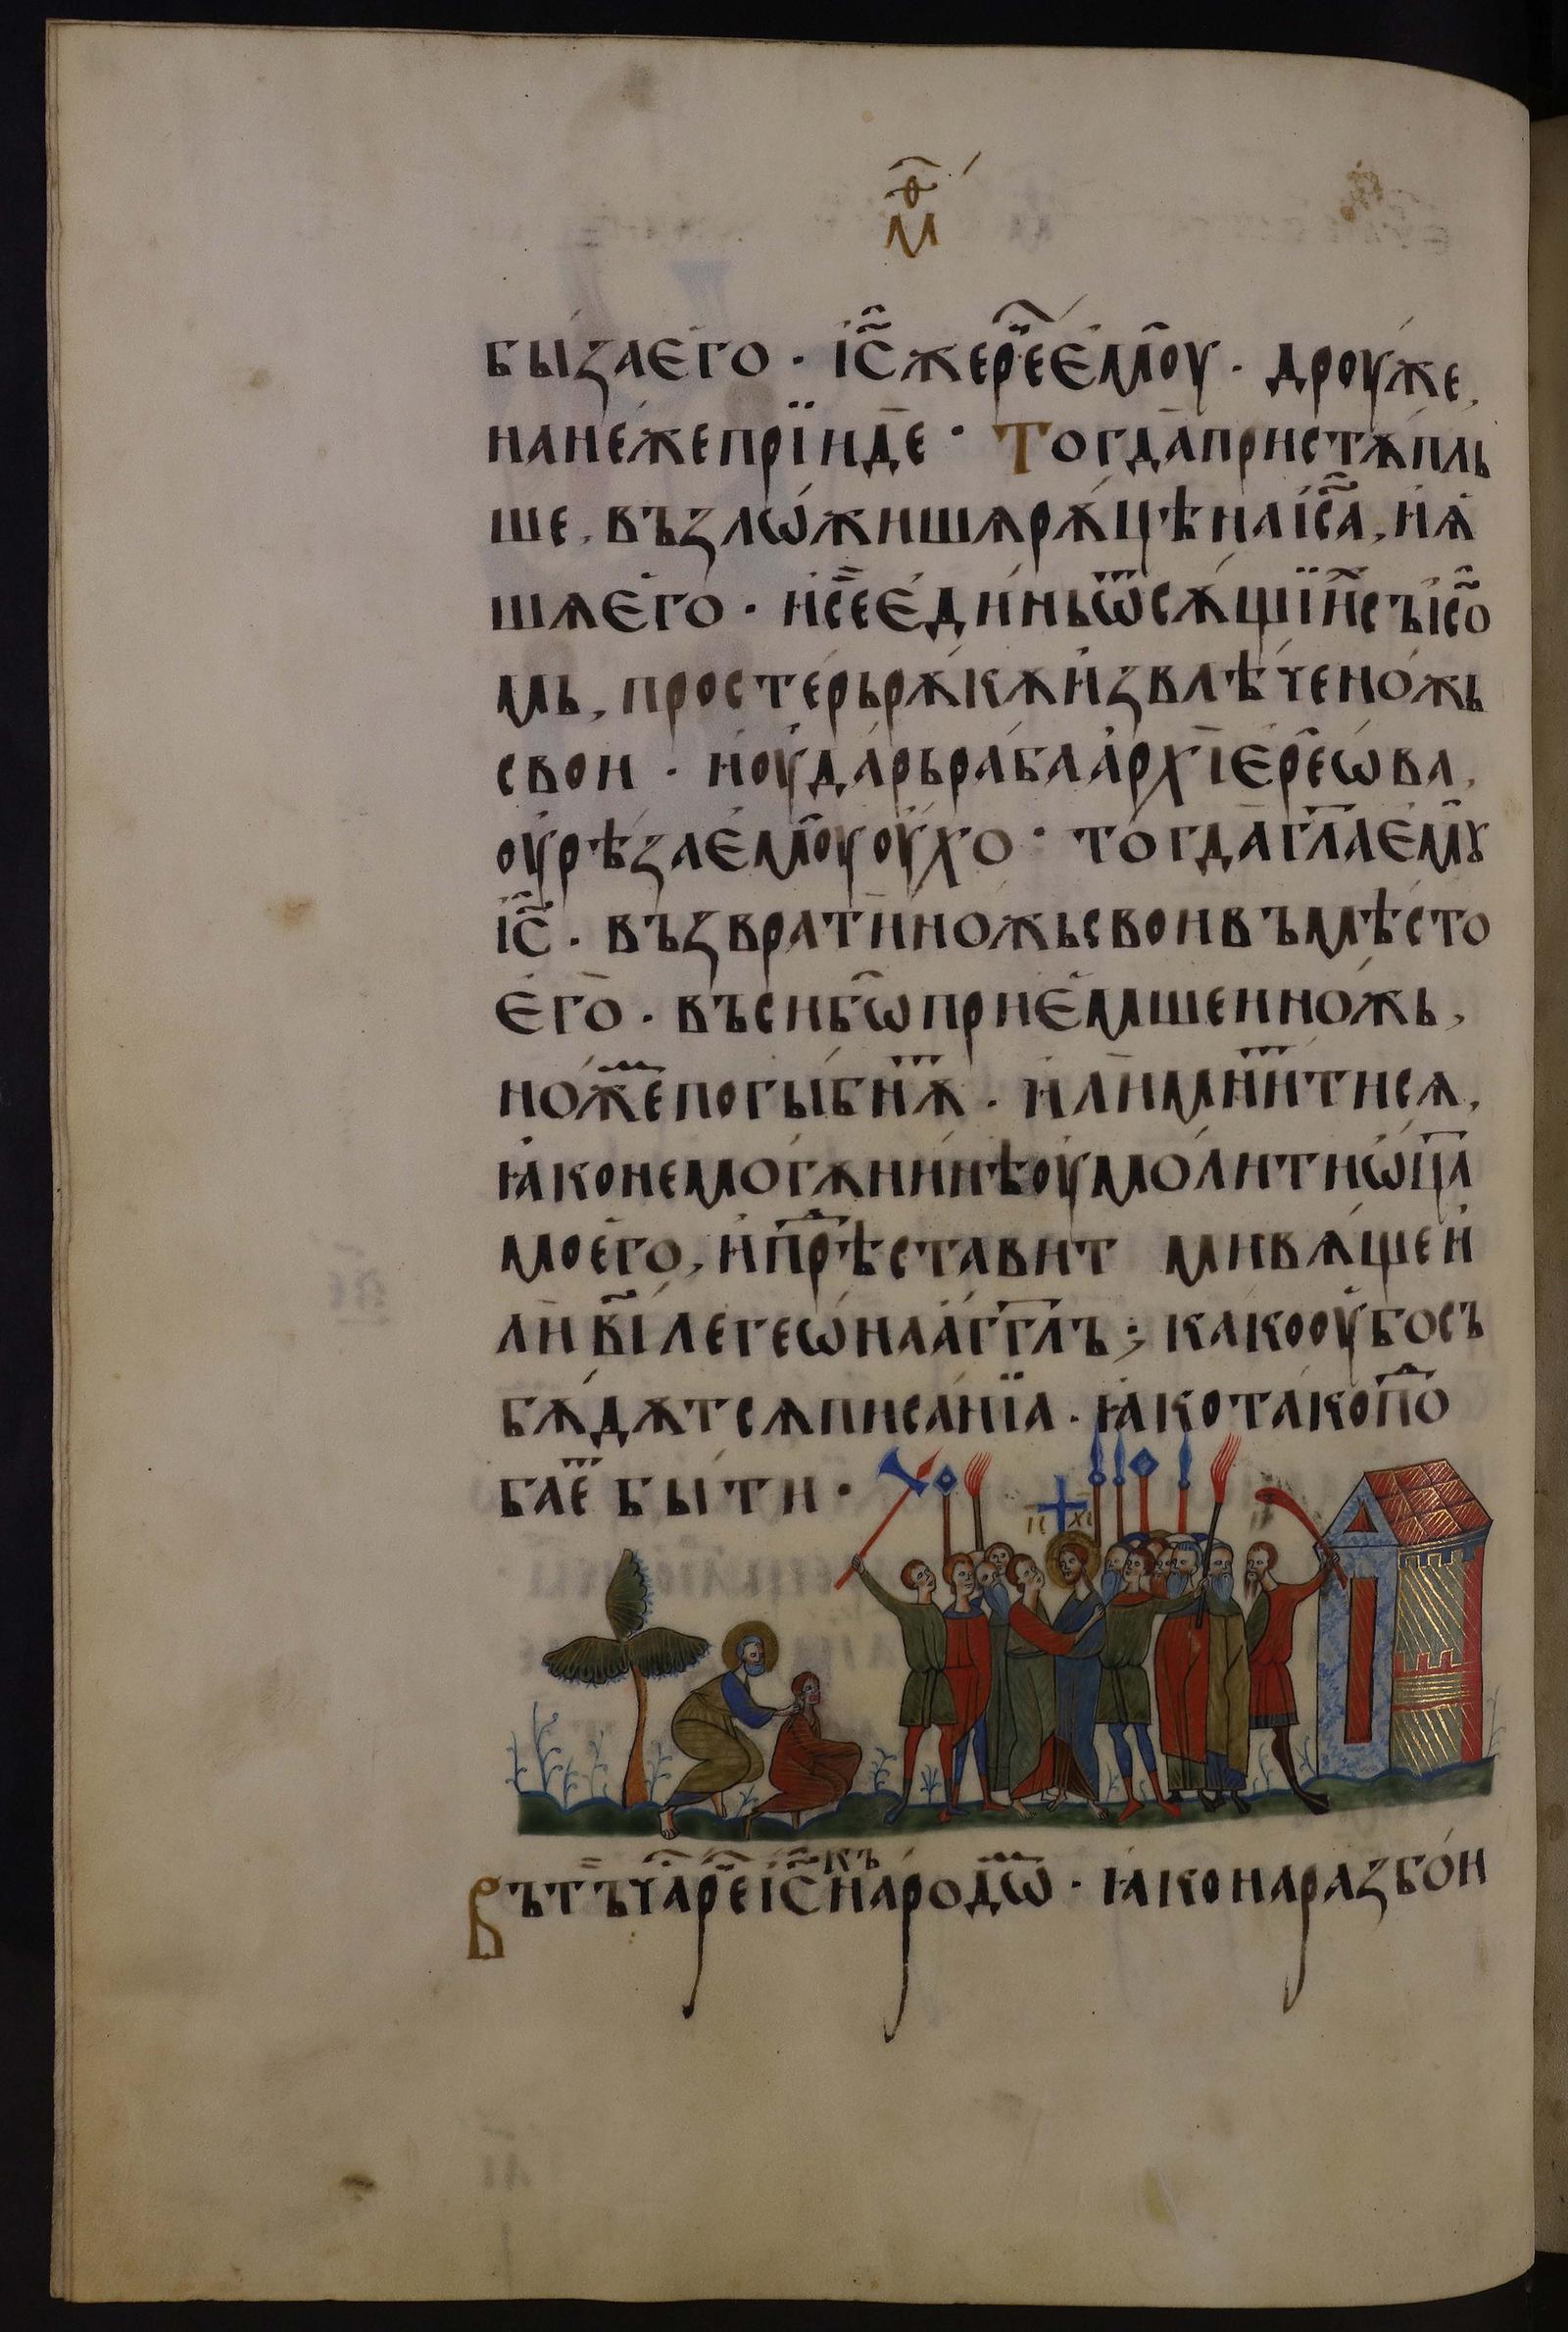 ѳ҃м
бы́заего · і҆с҃жерⷱ҇ее҆моу · дроу́же,
нане́жепрїиде · Тогда̀пристѫ́пль
ше, възлѡ́жишѧрѫ́цѣнаі҆с҃а, и҆ѧ҆
шѧе҆го · и҆се҃е҆ди́ньѿсѫ́щїиⷯсъі҆с҃о
мь, просте́рьрѫ́кѫи҆звлѣ́чено́жь
свои · и҆оу҆да́рьра́баа҆рхїе҆рее́ѡва,
оу҆рѣ́зае҆моуоу҆́хо · то́гда̀гл҃ае҆мꙋ
і҆с҃ · възврати̑ножьсвоивъмѣ́сто
е҆го̀ · въсиб҃ѡприе҆́мшеино́жь,
но́жеⷨ҇погы́бнⷮѫ · и҆ли̑мни́ⷮтисѧ,
ꙗ҆конемо́гѫни́нѣоу҆моли́тиѡ҆ц҃а
мое҆го, и҆прⷣѣставит миѧ́щеи҆
ли̑в҃і легеѡ́наа҆́гг҃лъ ; ка́кооу҆босъ
бѫ́дѫтсѧписа́нїа · ꙗ҆кота́копⷣо
баеⷮ бы́ти ·
ІС ХС
Вътъчаⷭ҇рееі҆с҃къна́родѡⷨ · ꙗ҆конаразбо́и